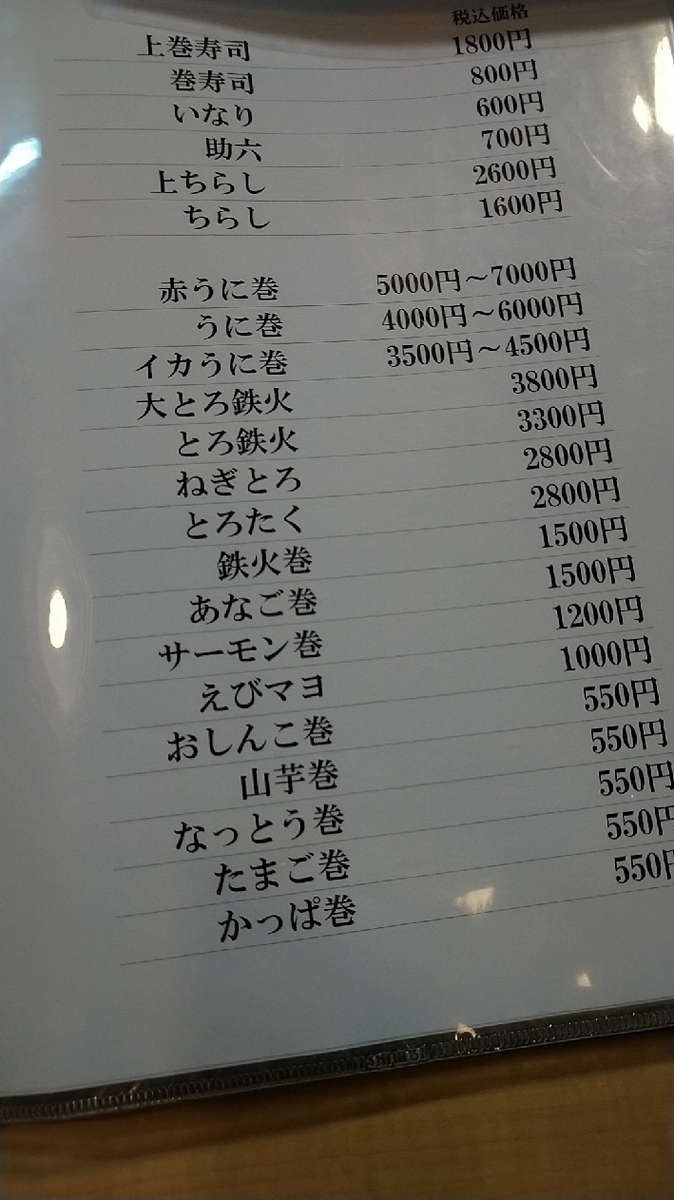 税込価格
上巻寿司 1800円
巻寿司 800円
いなり 600円
助六 700円
上ちらし 2600円
ちらし 1600円
赤うに巻 5000円～7000円
うに巻 4000円～6000円
イカうに巻 3500円～4500円
大とろ鉄火 3800円
とろ鉄火 3300円
ねぎとろ 2800円
とろたく 2800円
鉄火巻 1500円
あなご巻 1500円
サーモン巻 1200円
えびマヨ 1000円
おしんこ巻 550円
山芋巻 550円
なっとう巻 550円
たまご巻 550円
かっぱ巻 550円